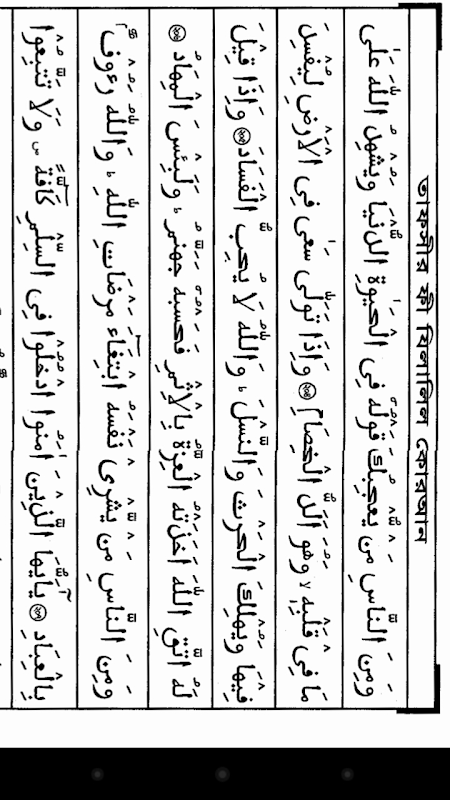 তাফসীর ফী যিলালিল কোরআন
وَمِنَ النَّاسِ مَنْ يُّعْجِبُكَ قَوْلُهٗ فِى الْحَيٰوةِ الدُّنْيَا وَيُشْهِدُ اللّٰهَ عَلٰى
مَا فِىْ قَلْبِهٖ ۙ وَهُوَ اَلَدُّ الْخِصَامِ ﴿٢٠٤﴾ وَاِذَا تَوَلّٰى سَعٰى فِى الْاَرْضِ لِيُفْسِدَ
فِيْهَا وَيُهْلِكَ الْحَرْثَ وَالنَّسْلَ ؕ وَاللّٰهُ لَا يُحِبُّ الْفَسَادَ ﴿٢٠٥﴾ وَاِذَا قِيْلَ
لَهُ اتَّقِ اللّٰهَ اَخَذَتْهُ الْعِزَّةُ بِالْاِثْمِ فَحَسْبُهٗ جَهَنَّمُ ؕ وَلَبِئْسَ الْمِهَادُ ﴿٢٠٦﴾
وَمِنَ النَّاسِ مَنْ يَّشْرِىْ نَفْسَهُ ابْتِغَآءَ مَرْضَاتِ اللّٰهِ ؕ وَاللّٰهُ رَءُوْفٌۢ
بِالْعِبَادِ ﴿٢٠٧﴾ يٰۤاَيُّهَا الَّذِيْنَ اٰمَنُوا ادْخُلُوْا فِى السِّلْمِ كَآفَّةً ۪ وَلَا تَتَّبِعُوْا